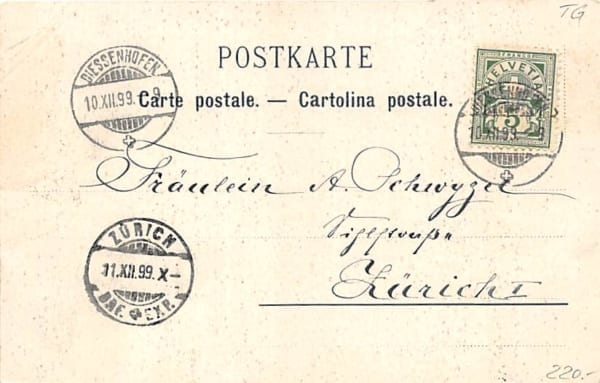 TG
POSTKARTE
Carte postale. — Cartolina postale.
DIESSENHOFEN
10.XII.99. - 9
HELVETIA
5
DIESSENHOFEN
10.XII.99. - 9
Fräulein A. Schwyzer
Sihlstraße
Zürich I
ZÜRICH
11.XII.99. X -
BRF. EXP.
220.-